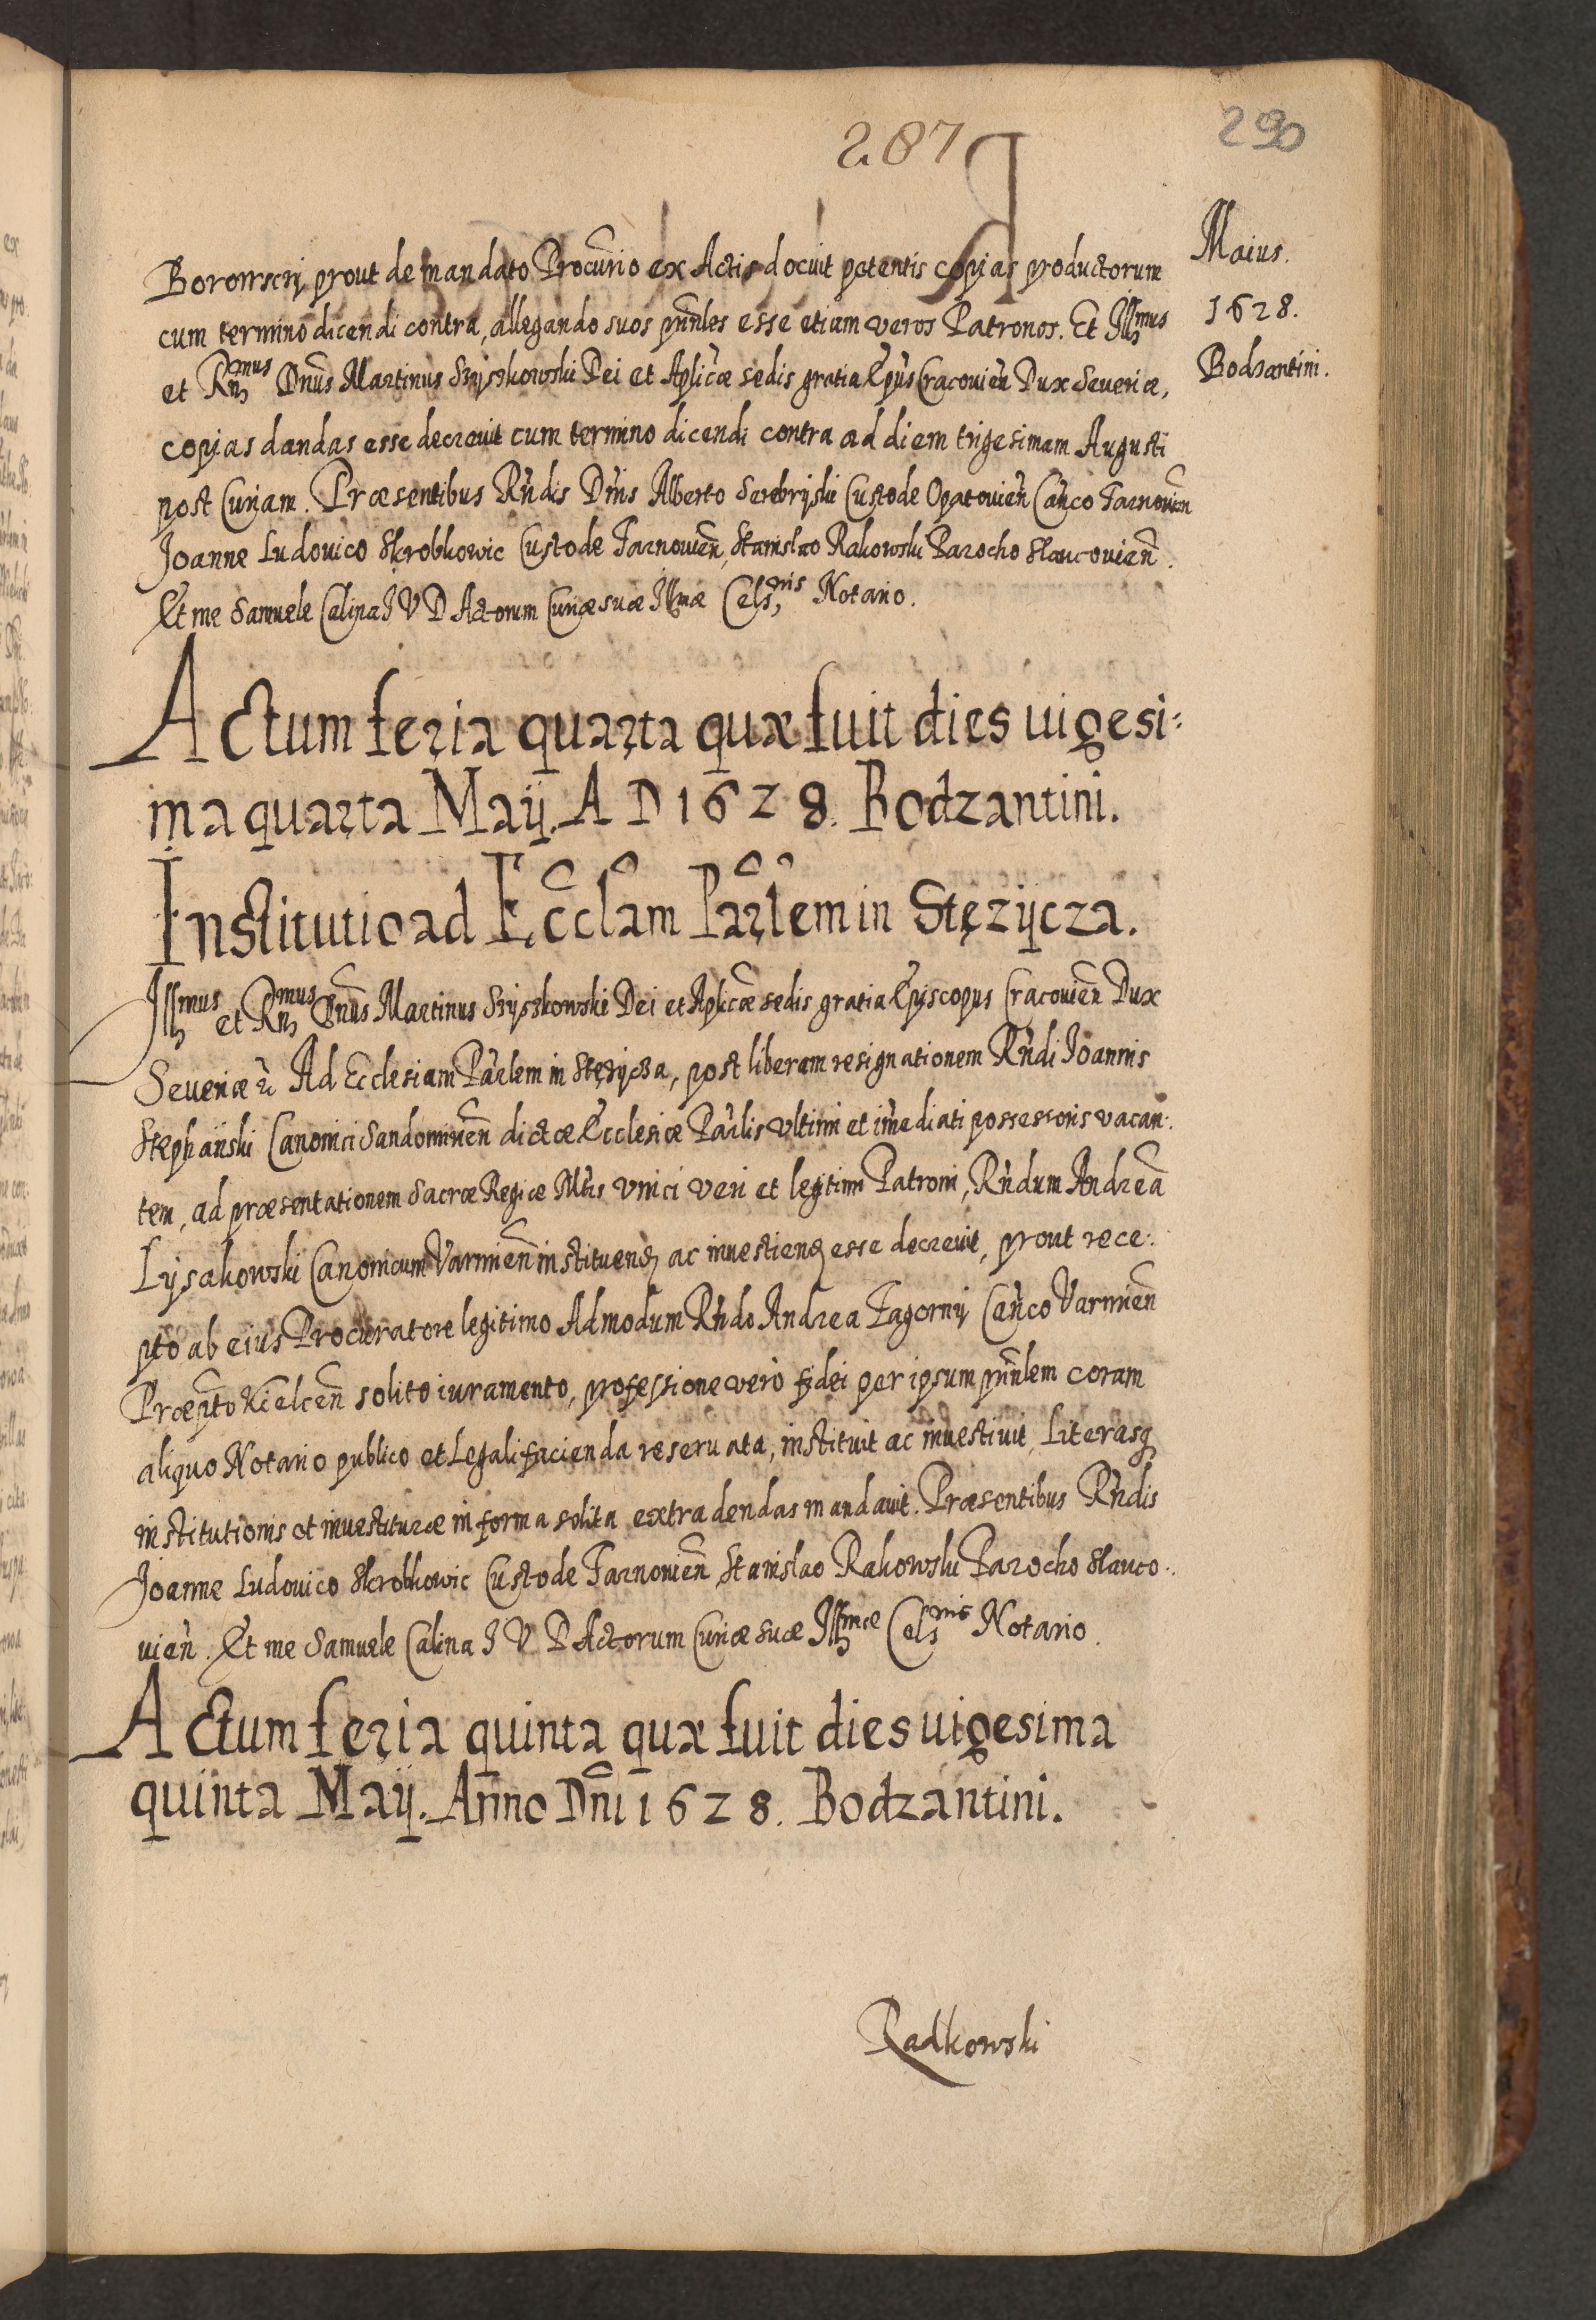 287
290
Maius.
1628.
Bodzantini.
Borowscy, prout de mandato Procurio ex Actis docuit petentis copias productorum
cum termino dicendi contra, allegando suos prinles esse etiam veros Patronos. Et Illmus
et Rmus Dnus Martinus Szyszkowski Dei et Aplicæ sedis gratia Epus Cracovien Dux Severiæ,
copias dandas esse decrevit cum termino dicendi contra ad diem trigesimam Augusti
post Curiam. Præsentibus Rndis Dnis Alberto Serebryski Custode Opatovien Canco Tarnovien
Joanne Ludovico Skrobkowic Custode Tarnovien, Stanislao Rakowski Parocho Slavcovien.
Et me Samuele Calina J V D Actorum Curiæ suæ Illmæ Celsnis Notario.
Actum feria quarta quæ fuit dies uigesi:
ma quarta Maij. A D 1628. Bodzantini.
Institutio ad Ecclam Parlem in Stęzycza.
Illmus et Rmus Dnus Martinus Szyszkowski Dei et Aplicæ sedis gratia Episcopus Cracovien Dux
Severiæ &c Ad Ecclesiam Parlem in Stęzycza, post liberam resignationem Rndi Joannis
Stephański Canonici Sandomirien dictæ Ecclesiæ Parlis vltimi et imediati possessoris vacan:
tem, ad præsentationem Sacræ Regiæ Mtis vnici veri et legitimi Patroni, Rndum Andrea
Lysakowski Canonicum Varmien instituend ac inuestiend esse decreuit, prout rece:
pto ab eius Procuratore legitimo Admodum Rndo Andrea Zagorny Canco Varmien
Præpto Kielcen solito iuramento, professione verò fidei per ipsum prinlem coram
aliquo Notario publico et Legali facienda reseruata, instituit ac inuestiuit, Literasq
institutionis et inuestituræ in forma solita extradendas mandauit. Præsentibus Rndis
Joanne Ludovico Skrobkowic Custode Tarnovien, Stanislao Rakowski Parocho Slavco:
uien. Et me Samuele Calina J V D Actorum Curiæ suæ Illmæ Celsnis Notario.
Actum feria quinta quæ fuit dies uigesima
quinta Maij. Anno Dni 1628. Bodzantini.
Radkowski